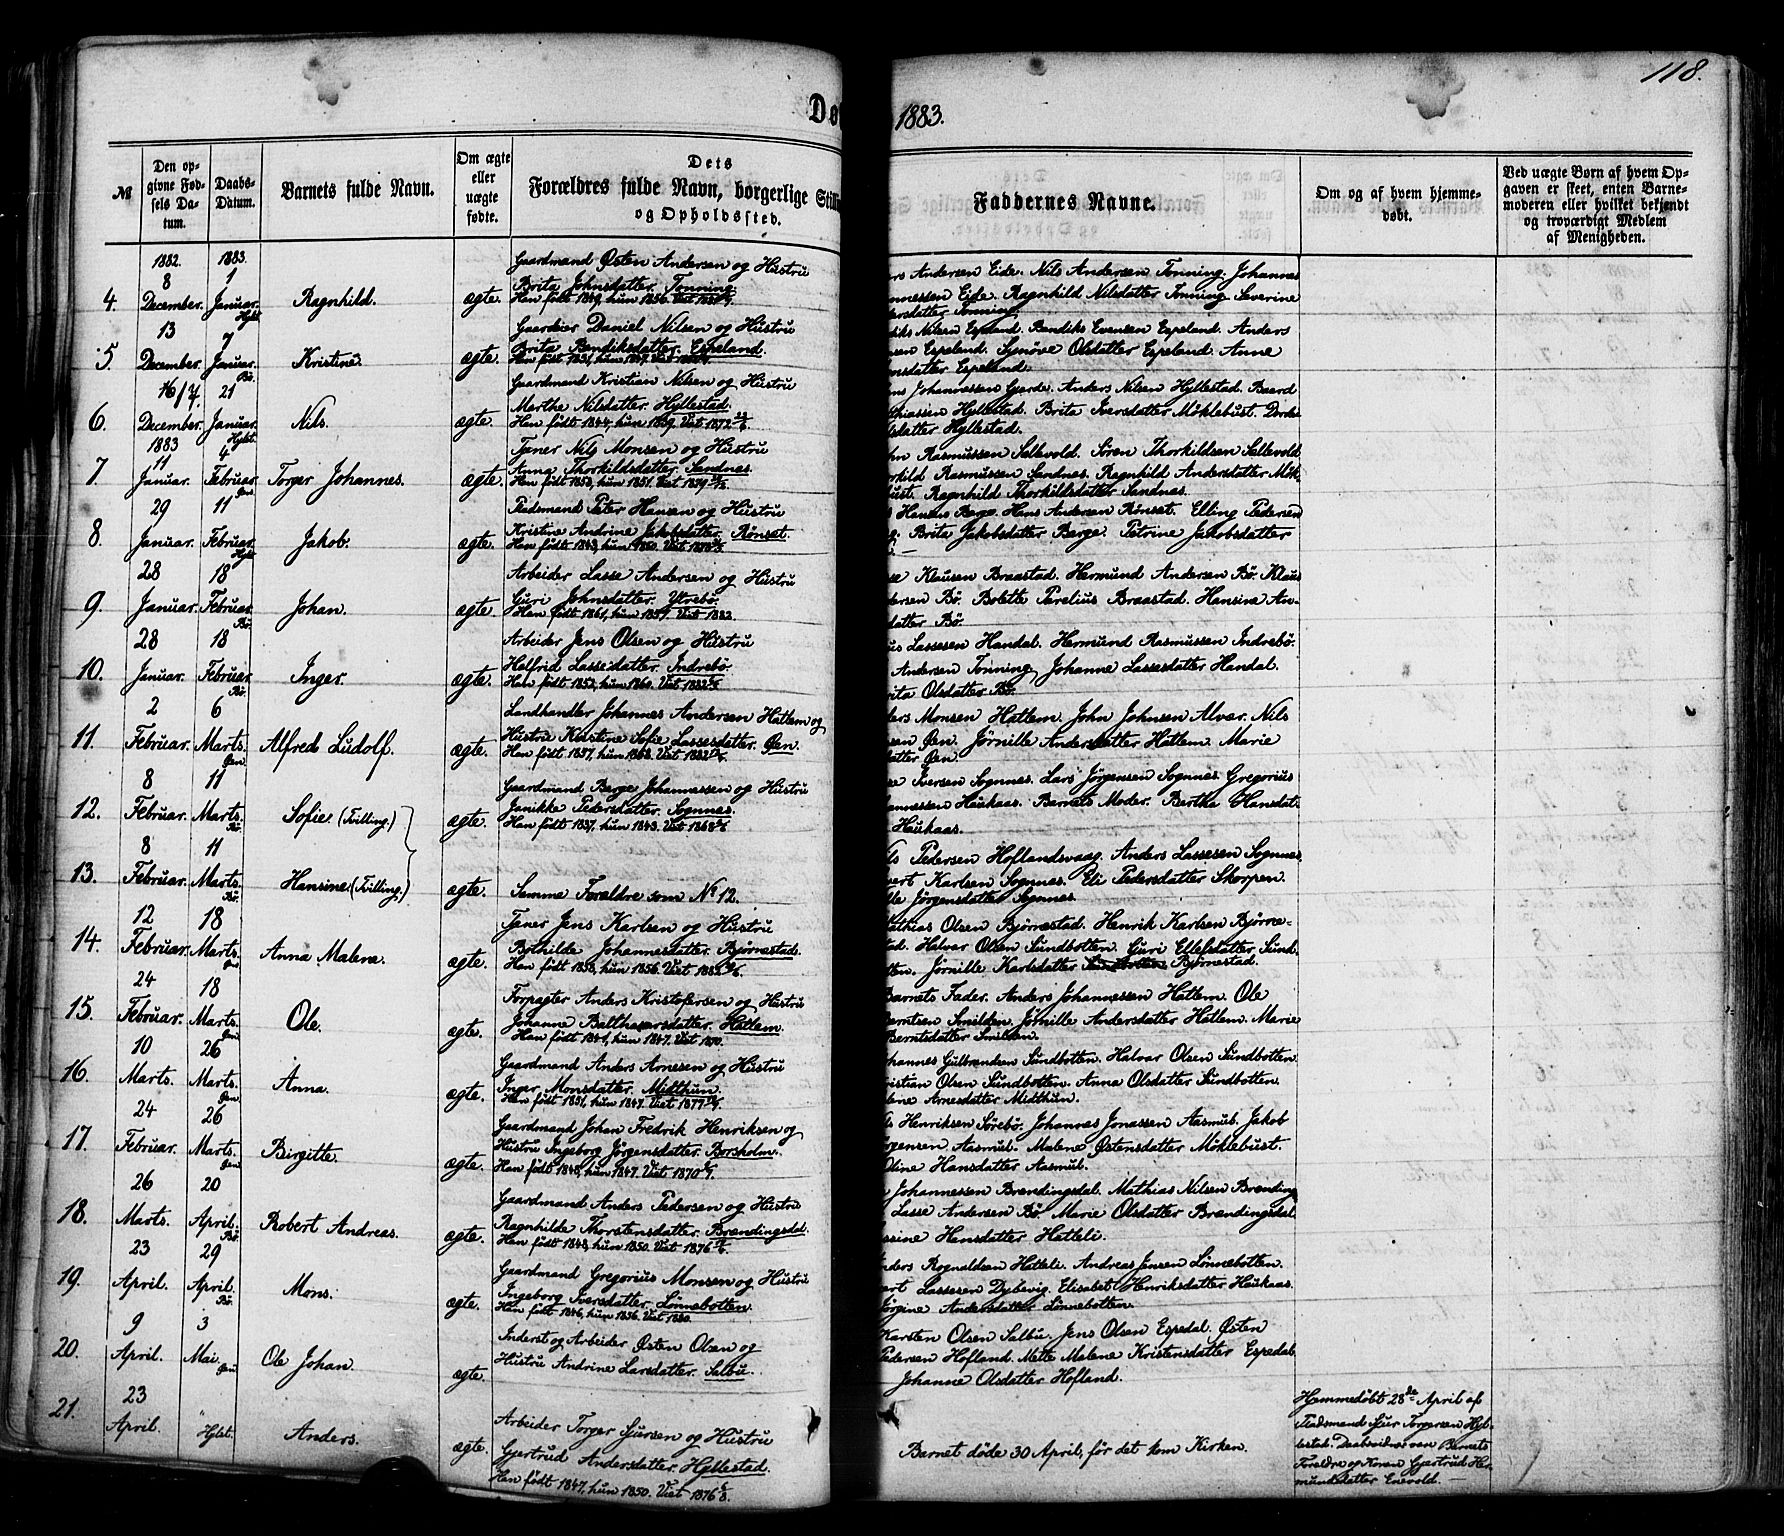 118.
Dø
1883.
№
Den opgivne Fødsels Datum.
Daabs-Datum.
Barnets fulde Navn.
Om ægte eller uægte fødte.
Dets
Forældres fulde Navn, borgerlige Still
og Opholdssted.
Faddernes Navne.
Om og af hvem hjemmedøbt.
Ved uægte Børn af hvem Opgaven er skeet, enten Barnemoderen eller hvilket bekjendt og troværdigt Medlem af Menigheden.
1882. 1883.
8 1 Gaardmand Østen Andersen og Hustru
Brita Johnsdatter. Tonning.
4 December. Januar. Ragnhild. ægte. Han født 1849, hun 1856.
rs Andersen Eide. Nils Andersen Tonning. Johannes
nnessen Eide. Ragnhild Nilsdatter Tonning. Severine
ersdatter Tonning.
Hylst.
13 7 Gaardeier Daniel Nilsen og Hustru
Brita Bendiksdatter. Espeland.
5. December. Januar. Kristine. ægte.
diks Nilsen Espeland. Bendiks Evensen Espeland. Anders
nsen Espeland. Synøve Olsdatter Espeland. Anne
nsdatter Espeland.
Bø.
21 Gaardmand Kristian Nilsen og Hustru
Marthe Nilsdatter. Hyllestad.
6. December. Januar. Nils. ægte. Han født 1844, hun 1839. Viet 1872
ns Johannessen Gjerde. Anders Nilsen Hyllestad. Beard
thiassen Hyllestad. Brita Iversdatter Møklebust. Dorde
sdatter Hyllestad.
1883 Hylst.
11 4 Tjener Nils Monsen og Hustru
Anna Thorkildsdatter. Sandnes.
7. Januar. Februar. Torger Johannes. ægte. Han født 1853, hun 1851. Viet 1879
hn Rasmussen Sallevold. Sören Thorkildsen Sallevold
orkild Rasmussen Sandnes. Ragnhild Andersdatter Møk-
bust. Ragnhild Thorkildsdatter Sandnes.
Øen
29 11 Pladsmand Peter Hansen og Hustru
Kristine Andrine Jakobsdatter. Rønset.
8. Januar. Februar. Jakob. ægte. Han født 1843, hun 1850.
s Hansen Berge. Hans Andersen Rønset. Elling Pedersen
Brita Jakobsdatter Berge. Petrine Jakobsdatter
Hylst.
28 18 Arbeider Lasse Andersen og Hustru
Guri Johnsdatter. Ytrebø.
9. Januar. Februar. Johan. ægte. Han født 1861, hun 1857. Viet 1882.
se Klausen Braastad. Hermund Andersen Bø. Klaus
dersen Bø. Bolette Parelius Braastad. Hansine An-
datter Bø.
Bø.
28 18 Arbeider Jens Olsen og Hustru
Halfrid Lassesdatter. Indrebø.
10. Januar. Februar. Inger. ægte. Han født 1852, hun 1860. Viet 1882
us Lassesen Handal. Hermund Rasmussen Indrebø.
Andersen Tonning. Johanne Lassesdatter Handal.
rita Olsdatter Bø.
Bø.
2 6 Landhandler Johannes Andersen Hatlem og
Hustru Kirstine Sofie Lassesdatter. Øen.
11. Februar. Marts. Alfred Ludolf. ægte. Han født 1857, hun 1863. Viet 1882
ders Monsen Hatlem. John Johnsen Alvar. Nils
sen Øen. Jørnille Andersdatter Hatlem. Marie
datter Øen.
Øen.
8 11 Gaardmand Berge Johannessen og Hustru
Janikke Pedersdatter. Sognnes.
12. Februar. Marts. Sofie. (Tvilling.) ægte. Han født 1837, hun 1843. Viet 1868
se Iversen Sognnes. Lars Jørgensen Sognnes. Gregorius
annessen Haukaas. Barnets Moder. Bertha Hansdat-
Haukaas.
Bø.
8 11
13. Februar. Marts. Hansine (Tvilling.) ægte. Samme Forældre som № 12.
ls Pedersen Hoflandsvaag. Anders Lassesen Sognnes.
vert Karlsen Sognnes. Eli Pedersdatter Skorpen.
lle Jørgensdatter Sognnes.
Bø.
12 18 Tjener Jens Karlsen og Hustru
Bothilde Johannesdatter. Bjørnestad.
14. Februar. Marts. Anna Malene. ægte. Han født 1858, hun 1856.
Mathias Olsen Bjørnestad. Henrik Karlsen Bjørne-
stad. Halvar Olsen Sundbotten. Guri Ellefsdatter Sund-
tten. Jørnille Karlsdatter Bjørnestad.
Øen
24 18 Forpagter Anders Kristofersen og Hustru
Johanne Balthasarsdatter. Hatlem.
15. Februar. Marts. Ole. ægte. Han født 1841, hun 1847. Viet 1870.
Barnets Fader. Anders Johannessen Hatlem. Ole
Berntsen Smilden. Jørnille Andersdatter Hatlem. Marie
Berntsdatter Smilden.
Øen
10 26 Gaardmand Anders Arnesen og Hustru
Inger Monsdatter. Midthun.
16. Marts. Marts. Anna. ægte. Han født 1851, hun 1847. Viet 1877
ohannes Gulbrandsen Sundbotten. Halvar Olsen Sundbotten.
ristian Olsen Sundbotten. Anna Olsdatter Sundbotten.
lene Arnesdatter Midthun.
Øen.
24 26 Gaardmand Johan Fredrik Henriksen og
Hustru Ingeborg Jørgensdatter. Borsholm.
17. Februar. Marts. Birgitte. ægte. Han født 1848, hun 1847. Viet 1870
ls Henriksen Sørebø. Johannes Jonassen Aasmul. Jakob
Jørgensen Aasmul. Malene Østensdatter Møklebust.
Oline Hansdatter Aasmul.
Øen.
26 20 Gaardmand Anders Pedersen og Hustru
Ragnhilde Thorstensdatter. Brændingsdal.
18. Marts. April. Robert Andreas. ægte. Han født 1848, hun 1850. Viet 1876
Johannessen Brændingsdal. Mathias Nilsen Brænding
Lasse Andersen Bø. Marie Olsdatter Brændingsdal
ssine Hansdatter Hatleli.
Bø.
23 29 Gaardmand Gregorius Monsen og Hustru
Ingeborg Iversdatter. Lønnebotten.
19. April. April. Mons. ægte. Han født 1846, hun 1856. Viet 1880.
nders Rognaldsen Hatleli. Andreas Jensen Lønnebotten.
ert Lassesen Dybevig. Elisabet Henriksdatter Haukaas.
Jørgine Andersdatter Lønnebotten.
Bø.
9 3 Inderst og Arbeider Østen Olsen og
Hustru Andrine Larsdatter. Salbu.
20. April. Mai. Ole Johan. ægte.
Karsten Olsen Salbu. Jens Olsen Espedal. Østen
Pedersen Hofland. Mette Malene Kristensdatter Espedal.
Johanne Olsdatter Hofland.
Øen
23 Arbeider Torger Sjursen og Hustru
Gjertrud Andersdatter. Hyllestad.
21. April. Hylst. Anders. ægte. Han født 1847, hun 1850. Viet 1876
Barnet døde 30 April, før det kom Kirken.
Hjemmedøbt 28de April af
Pladsmand Sjur Torgersen Hyl-
lestad. Daabsvidner var Barnets
Forældre og Konen Gjertrud Her-
mundsdatter Enevold.